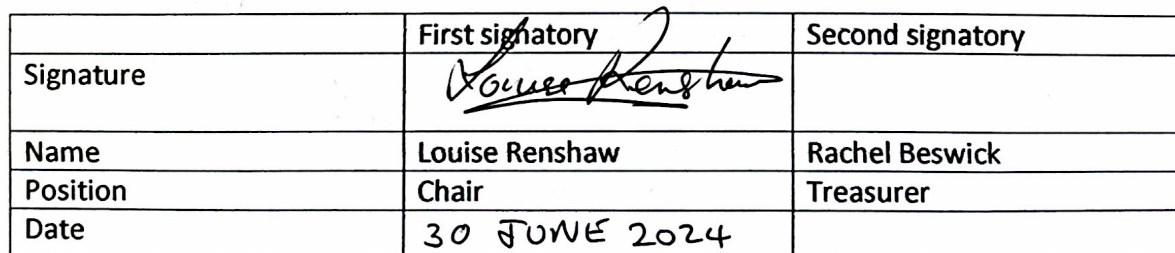 First signatory Second signatory
Signature Louise Renshaw
Name Louise Renshaw Rachel Beswick
Position Chair Treasurer
Date 30 JUNE 2024